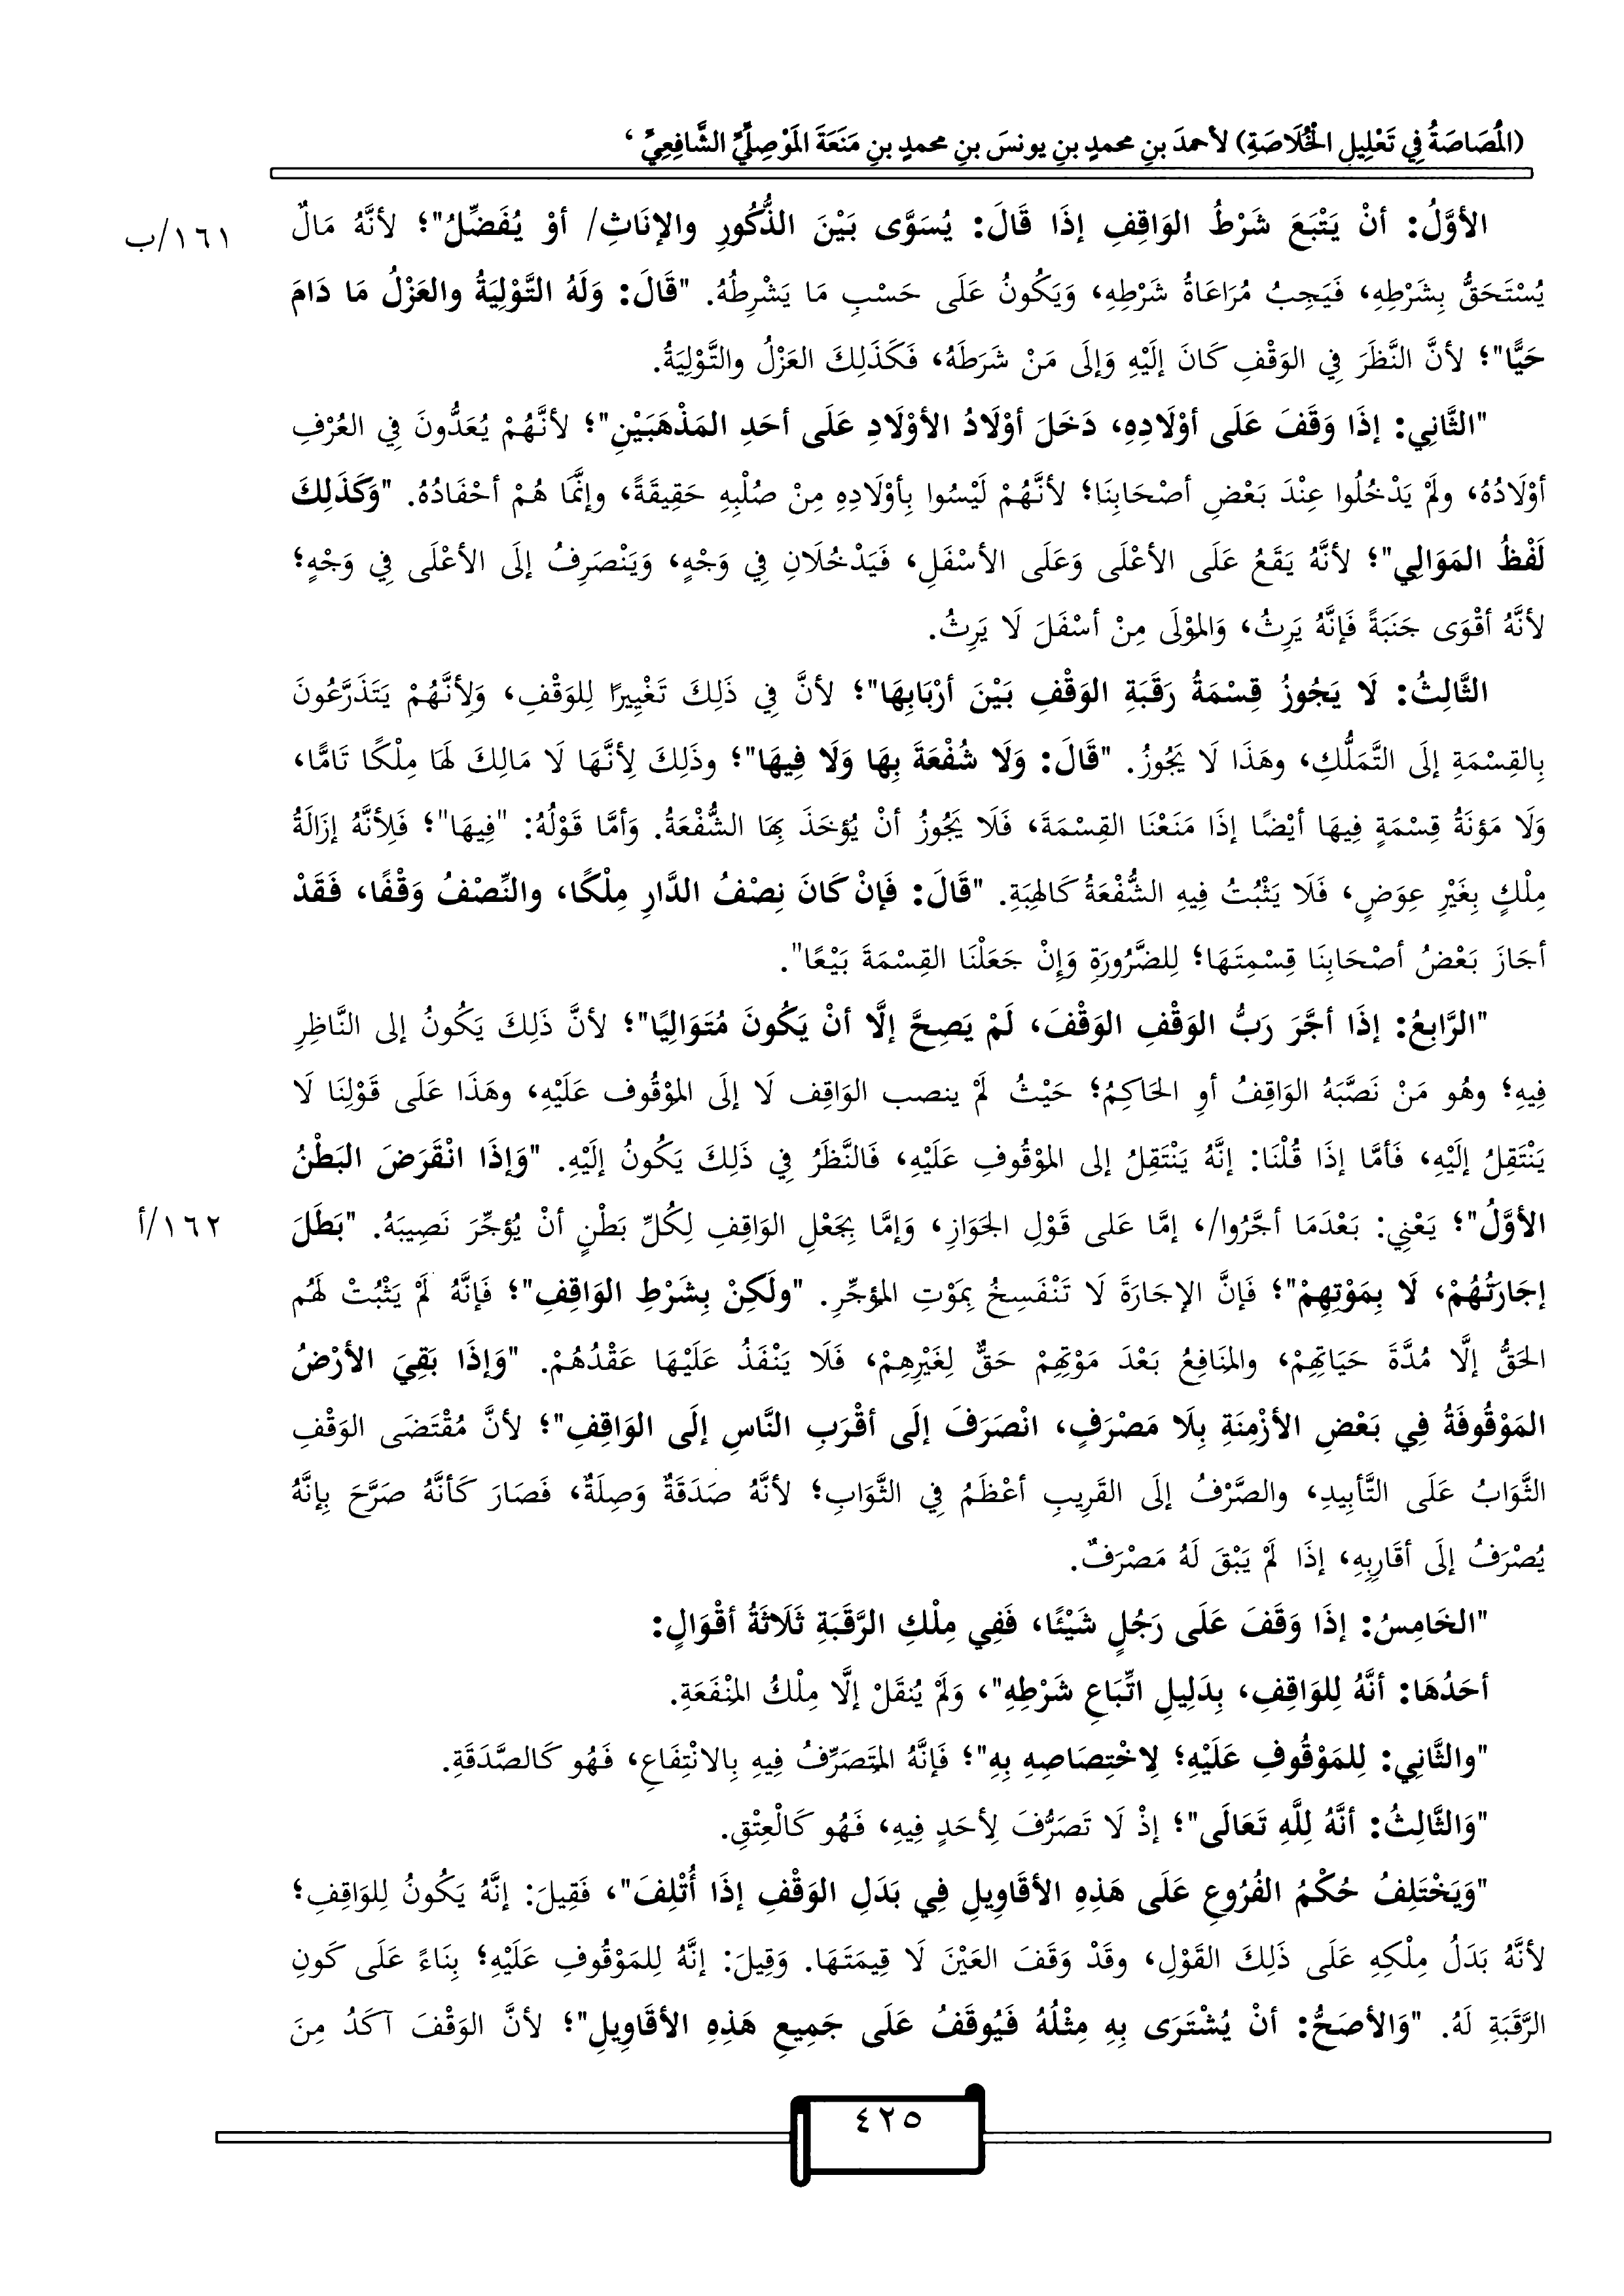 (المُصَاصَةُ فِي تَعْلِيلِ الْخُلَاصَةِ) لأحمدَ بنِ محمدِ بنِ يونسَ بنِ محمدِ بنِ مَنَعَةَ المَوْصِلِيِّ الشَّافِعِيِّ ،
الأوَّلُ: أنْ يَتْبَعَ شَرْطُ الوَاقِفِ إذَا قَالَ: يُسَوَّى بَيْنَ الذُّكُورِ والإنَاثِ/ أوْ يُفَضِّلُ"؛ لأنَّهُ مَالٌ
١٦١/ب
يُسْتَحَقُّ بِشَرْطِهِ، فَيَجِبُ مُرَاعَاةُ شَرْطِهِ، وَيَكُونُ عَلَى حَسْبِ مَا يَشْرِطُهُ. "قَالَ: وَلَهُ التَّوْلِيَةُ والعَزْلُ مَا دَامَ
حَيًّا"؛ لأنَّ النَّظَرَ فِي الوَقْفِ كَانَ إلَيْهِ وَإلَى مَنْ شَرَطَهُ، فَكَذَلِكَ العَزْلُ والتَّوْلِيَةُ.
"الثَّانِي: إذَا وَقَفَ عَلَى أوْلَادِهِ، دَخَلَ أوْلَادُ الأوْلَادِ عَلَى أحَدِ المَذْهَبَيْنِ"؛ لأنَّهُمْ يُعَدُّونَ فِي العُرْفِ
أوْلَادُهُ، ولَمْ يَدْخُلُوا عِنْدَ بَعْضِ أصْحَابِنَا؛ لأنَّهُمْ لَيْسُوا بِأوْلَادِهِ مِنْ صُلْبِهِ حَقِيقَةً، وإنَّمَا هُمْ أحْفَادُهُ. "وَكَذَلِكَ
لَفْظُ المَوَالِي"؛ لأنَّهُ يَقَعُ عَلَى الأعْلَى وَعَلَى الأسْفَلِ، فَيَدْخُلَانِ فِي وَجْهٍ، وَيَنْصَرِفُ إلَى الأعْلَى فِي وَجْهٍ؛
لأنَّهُ أقْوَى جَنَبَةً فَإنَّهُ يَرِثُ، وَالمَوْلَى مِنْ أسْفَلَ لَا يَرِثُ.
الثَّالِثُ: لَا يَجُوزُ قِسْمَةُ رَقَبَةِ الوَقْفِ بَيْنَ أرْبَابِهَا"؛ لأنَّ فِي ذَلِكَ تَغْيِيرًا لِلوَقْفِ، وَلأنَّهُمْ يَتَذَرَّعُونَ
بِالقِسْمَةِ إلَى التَّمَلُّكِ، وهَذَا لَا يَجُوزُ. "قَالَ: وَلَا شُفْعَةَ بِهَا وَلَا فِيهَا"؛ وذَلِكَ لِأنَّهَا لَا مَالِكَ لَهَا مِلْكًا تَامًّا،
وَلَا مَؤنَةُ قِسْمَةٍ فِيهَا أيْضًا إذَا مَنَعْنَا القِسْمَةَ، فَلَا يَجُوزُ أنْ يُؤخَذَ بِهَا الشُّفْعَةُ. وَأمَّا قَوْلُهُ: "فِيهَا"؛ فَلِأنَّهُ إزَالَةُ
مِلْكٍ بِغَيْرِ عِوَضٍ، فَلَا يَثْبُتُ فِيهِ الشُّفْعَةُ كَالهِبَةِ. "قَالَ: فَإنْ كَانَ نِصْفُ الدَّارِ مِلْكًا، والنِّصْفُ وَقْفًا، فَقَدْ
أجَازَ بَعْضُ أصْحَابِنَا قِسْمِتَهَا؛ لِلضَّرُورَةِ وَإنْ جَعَلْنَا القِسْمَةَ بَيْعًا".
"الرَّابِعُ: إذَا أجَّرَ رَبُّ الوَقْفِ الوَقْفَ، لَمْ يَصِحَّ إلَّا أنْ يَكُونَ مُتَوَالِيًا"؛ لأنَّ ذَلِكَ يَكُونُ إلى النَّاظِرِ
فِيهِ؛ وهُو مَنْ نَصَّبَهُ الوَاقِفُ أوِ الحَاكِمُ؛ حَيْثُ لَمْ ينصب الوَاقِف لَا إلَى المَوْقُوف عَلَيْهِ، وهَذَا عَلَى قَوْلِنَا لَا
يَنْتَقِلُ إلَيْهِ، فَأمَّا إذَا قُلْنَا: إنَّهُ يَنْتَقِلُ إلى المَوْقُوفِ عَلَيْهِ، فَالنَّظَرُ فِي ذَلِكَ يَكُونُ إلَيْهِ. "وَإذَا انْقَرَضَ البَطْنُ
الأوَّلُ"؛ يَعْنِي: بَعْدَمَا أجَّرُوا/، إمَّا عَلى قَوْلِ الجَوَازِ، وَإمَّا بِجَعْلِ الوَاقِفِ لِكُلِّ بَطْنٍ أنْ يُؤجِّرَ نَصِيبَهُ. "بَطَلَ
١٦٢/أ
إجَارَتُهُمْ، لَا بِمَوْتِهِمْ"؛ فَإنَّ الإجَارَةَ لَا تَنْفَسِخُ بِمَوْتِ المُؤجِّرِ. "ولَكِنْ بِشَرْطِ الوَاقِفِ"؛ فَإنَّهُ لَمْ يَثْبُتْ لَهُم
الحَقُّ إلَّا مُدَّةَ حَيَاتِهِمْ، والمنَافِعُ بَعْدَ مَوْتِهِمْ حَقٌّ لِغَيْرِهِمْ، فَلَا يَنْفَذُ عَلَيْهَا عَقْدُهُمْ. "وَإذَا بَقِيَ الأرْضُ
المَوْقُوفَةُ فِي بَعْضِ الأزْمِنَةِ بِلَا مَصْرَفٍ، انْصَرَفَ إلَى أقْرَبِ النَّاسِ إلَى الوَاقِفِ"؛ لأنَّ مُقْتَضَى الوَقْفِ
الثَّوَابُ عَلَى التَّأبِيدِ، والصَّرْفُ إلَى القَرِيبِ أعْظَمُ فِي الثَّوَابِ؛ لأنَّهُ صَدَقَةٌ وَصِلَةٌ، فَصَارَ كَأنَّهُ صَرَّحَ بِإنَّهُ
يُصْرَفُ إلَى أقَارِبِهِ، إذَا لَمْ يَبْقَ لَهُ مَصْرَفٌ.
"الخَامِسُ: إذَا وَقَفَ عَلَى رَجُلٍ شَيْئًا، فَفِي مِلْكِ الرَّقَبَةِ ثَلَاثَةُ أقْوَالٍ:
أحَدُهَا: أنَّهُ لِلوَاقِفِ، بِدَلِيلِ اتِّبَاعِ شَرْطِهِ"، وَلَمْ يُنقَلْ إلَّا مِلْكُ المنْفَعَةِ.
"والثَّانِي: لِلمَوْقُوفِ عَلَيْهِ؛ لِاخْتِصَاصِهِ بِهِ"؛ فَإنَّهُ المتَصَرِّفُ فِيهِ بِالانْتِفَاعِ، فَهُو كَالصَّدَقَةِ.
"وَالثَّالِثُ: أنَّهُ لِلَّهِ تَعَالَى"؛ إذْ لَا تَصَرُّفَ لِأحَدٍ فِيهِ، فَهُو كَالْعِتْقِ.
"وَيَخْتَلِفُ حُكْمُ الفُرُوعِ عَلَى هَذِهِ الأقَاوِيلِ فِي بَدَلِ الوَقْفِ إذَا أُتْلِفَ"، فَقِيلَ: إنَّهُ يَكُونُ لِلوَاقِفِ؛
لأنَّهُ بَدَلُ مِلْكِهِ عَلَى ذَلِكَ القَوْلِ، وقَدْ وَقَفَ العَيْنَ لَا قِيمَتَهَا. وَقِيلَ: إنَّهُ لِلمَوْقُوفِ عَلَيْهِ؛ بِنَاءً عَلَى كَونِ
الرَّقَبَةِ لَهُ. "وَالأصَحُّ: أنْ يُشْتَرَى بِهِ مِثْلُهُ فَيُوقَفُ عَلَى جَمِيعِ هَذِهِ الأقَاوِيلِ"؛ لأنَّ الوَقْفَ آكَدُ مِنَ
٤٢٥